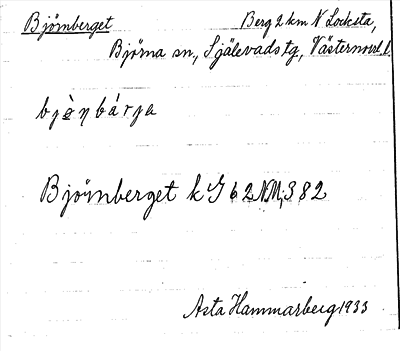 Björnberget Berg 2 km N Locksta,
Björna sn., Själevads tg, Västernorrl. l.
Björnberget k 62 NM; S 82
Asta Hammarberg 1933